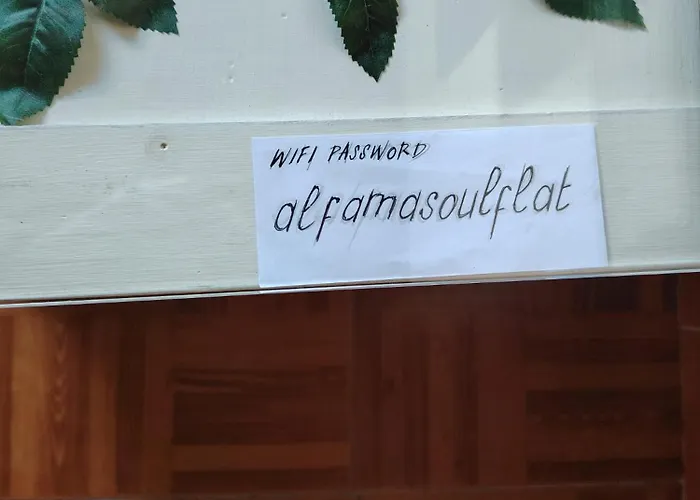 WIFI PASSWORD
alfamasoulflat